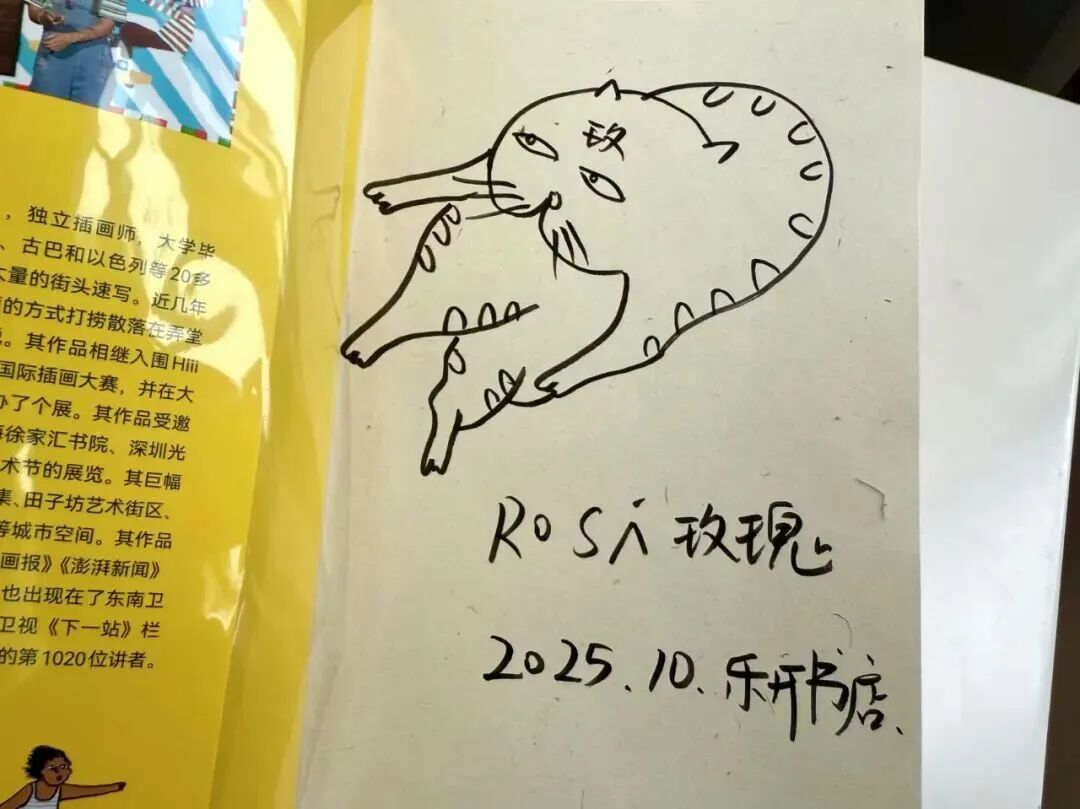 ，独立插画师，大学毕
、古巴和以色列等20多
大量的街头速写。近几年
的方式打捞散落在弄堂
。其作品相继入围Hiii
国际插画大赛，并在大
办了个展。其作品受邀
海徐家汇书院、深圳光
术节的展览。其巨幅
集、田子坊艺术街区、
等城市空间。其作品
画报》《澎湃新闻》
也出现在了东南卫
卫视《下一站》栏
的第1020位讲者。
玫
ROSA 玫瑰
2025.10.乐开书店.